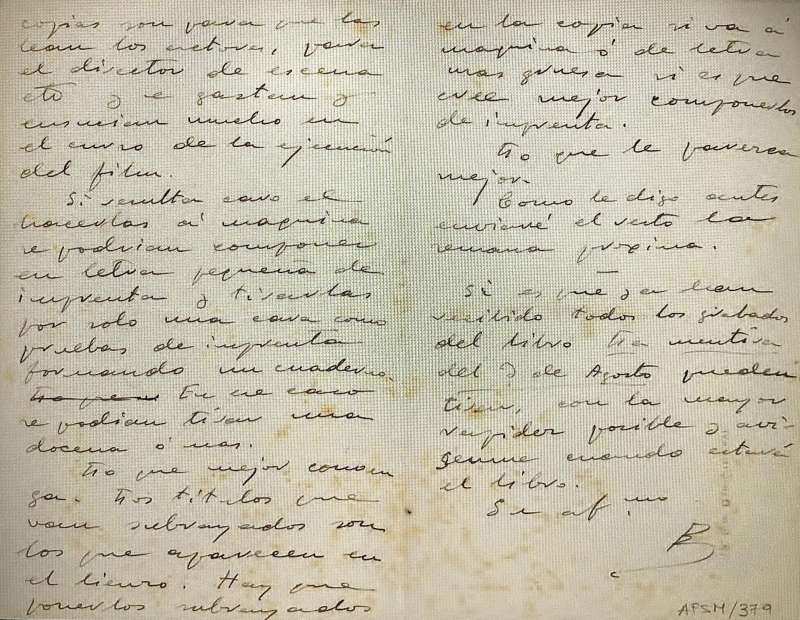 copias son para que las
lean los actores, para
el director de escena
etc y se gastan y
ensucian mucho en
el curso de la ejecución
del film.
Si resulta caro el
hacerlas á maquina
se podrian componer
en letra pequeña de
imprenta y tirarlas
por solo una cara como
pruebas de imprenta
formando un cuaderno.
En ese caso
se podian tirar una
docena ó mas.
Lo que mejor conven
ga. Los titulos que
van subrayados son
los que aparecen en
el lienzo. Hay que
ponerlos subrayados
en la copia si va á
maquina ó de letra
mas gruesa si es que
cree mejor componerlos
de imprenta.
Lo que le parezca
mejor.
Como le digo antes
enviaré el resto la
semana proxima.
Si es que ya han
recibido todos los grabados
del libro La mentira
del 9 de Agosto pueden
tirar, con la mayor
rapidez posible y avi-
senme cuando estará
el libro.
Su af.mo
B
AFSM/379